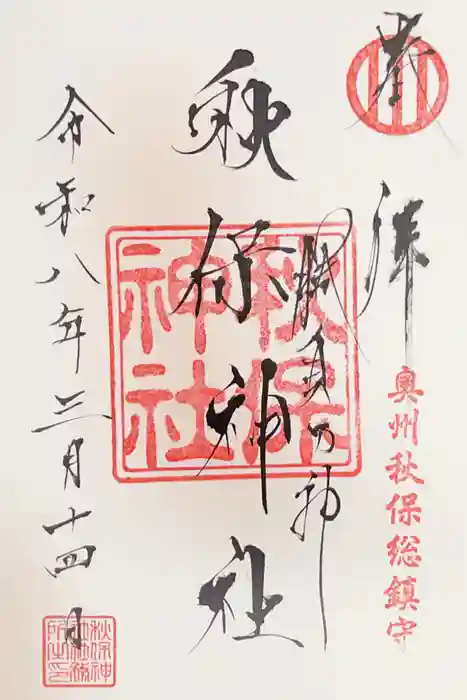 奉拝
奥州秋保総鎮守
勝負の神
秋保神社
秋保神社
令和八年三月十四日